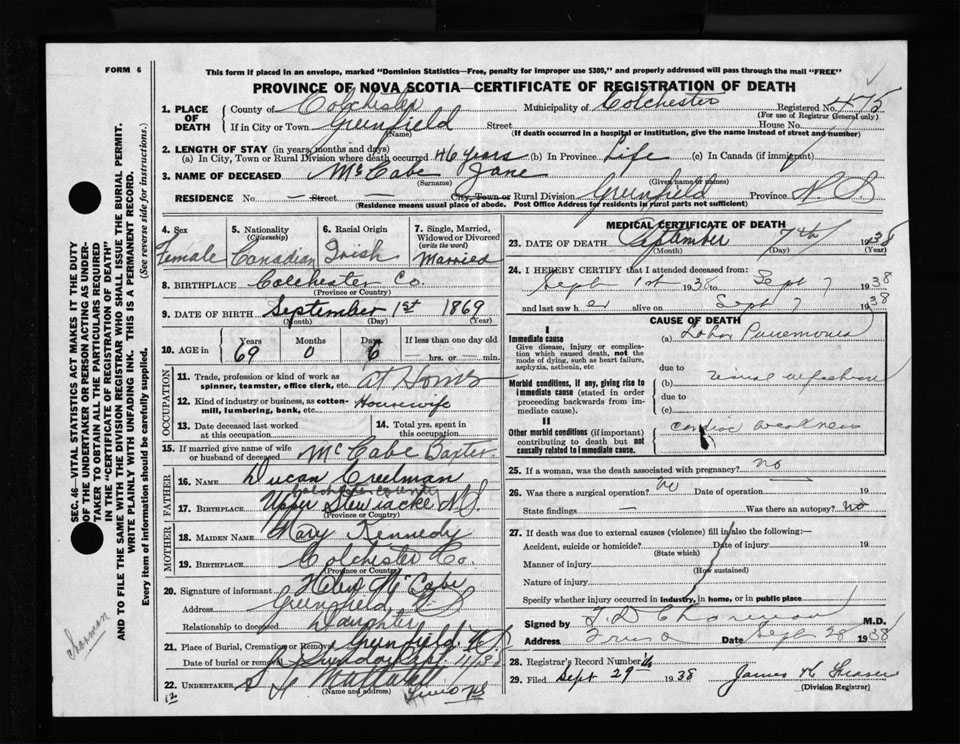 FORM 6
This form if placed in an envelope, marked "Dominion Statistics—Free, penalty for improper use $300," and properly addressed will pass through the mail "FREE"
PROVINCE OF NOVA SCOTIA—CERTIFICATE OF REGISTRATION OF DEATH
1. PLACE OF DEATH County of Colchester Municipality of Colchester Registered No. 475
(For use of Registrar General only)
If in City or Town Greenfield Street House No.
(Name) (If death occurred in a hospital or institution, give the name instead of street and number)
2. LENGTH OF STAY (in years, months and days)
(a) In City, Town or Rural Division where death occurred 46 years (b) In Province Life (c) In Canada (if immigrant)
3. NAME OF DECEASED McCabe Jane
(Surname) (Given name or names)
RESIDENCE No. — Street — City, Town or Rural Division Greenfield Province N.S
(Residence means usual place of abode. Post Office Address for residents in rural parts not sufficient)
4. Sex 5. Nationality (Citizenship) 6. Racial Origin 7. Single, Married, Widowed or Divorced (write the word)
Female Canadian Irish Married
8. BIRTHPLACE Colchester Co.
(Province or Country)
9. DATE OF BIRTH September 1st 1869
(Month) (Day) (Year)
10. AGE in Years Months Days If less than one day old
69 0 6 hrs. or min.
OCCUPATION
11. Trade, profession or kind of work as spinner, teamster, office clerk, etc. At Home
12. Kind of industry or business, as cotton-mill, lumbering, bank, etc. Housewife
13. Date deceased last worked at this occupation 14. Total yrs. spent in this occupation
15. If married give name of wife or husband of deceased McCabe Baxter
FATHER
16. NAME Ducan Creelman
Colchester County
17. BIRTHPLACE Upper Stewiacke N.S
(Province or Country)
MOTHER
18. MAIDEN NAME Mary Kennedy
19. BIRTHPLACE Colchester Co.
(Province or Country)
20. Signature of informant Helen McCabe
Address Greenfield, N.S
Relationship to deceased Daughter
21. Place of Burial, Cremation or Removal Greenfield N.S
Date of burial or removal Sunday Sept 11/38
22. UNDERTAKER
(Name and address) Truro N.S
12
MEDICAL CERTIFICATE OF DEATH
23. DATE OF DEATH September 7th 1938
(Month) (Day) (Year)
24. I HEREBY CERTIFY that I attended deceased from:
Sept 1st 1938 to Sept 7 1938
and last saw her alive on Sept 7 1938
CAUSE OF DEATH
I
Immediate cause
Give disease, injury or complication which caused death, not the mode of dying, such as heart failure, asphyxia, asthenia, etc.
(a) Lobar Pneumonia
due to
Morbid conditions, if any, giving rise to immediate cause (stated in order proceeding backwards from immediate cause).
(b)
due to
(c)
II
Other morbid conditions (if important) contributing to death but not causally related to immediate cause.
cardiac weakness
25. If a woman, was the death associated with pregnancy? no
26. Was there a surgical operation? no Date of operation 19
State findings — Was there an autopsy? no
27. If death was due to external causes (violence) fill in also the following:—
Accident, suicide or homicide? Date of injury 19
(State which)
Manner of injury
(How sustained)
Nature of injury
Specify whether injury occurred in industry, in home, or in public place
Signed by M.D.
Address Truro Date Sept 28 1938
28. Registrar's Record Number
29. Filed Sept 29th 1938 James K Fraser
(Division Registrar)
SEC. 46—VITAL STATISTICS ACT MAKES IT THE DUTY
OF THE UNDERTAKER OR PERSON ACTING AS UNDERTAKER TO OBTAIN ALL THE PARTICULARS REQUIRED
IN THE "CERTIFICATE OF REGISTRATION OF DEATH"
AND TO FILE THE SAME WITH THE DIVISION REGISTRAR WHO SHALL ISSUE THE BURIAL PERMIT.
WRITE PLAINLY WITH UNFADING INK. THIS IS A PERMANENT RECORD.
Every item of information should be carefully supplied. (See reverse side for instructions.)